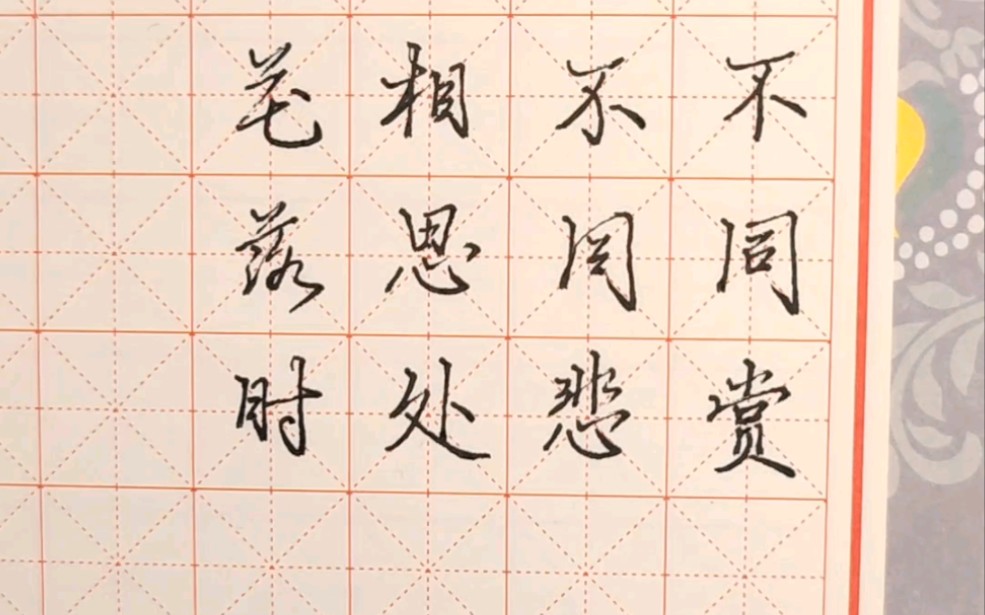 不同赏
不同悲
相思处
花落时